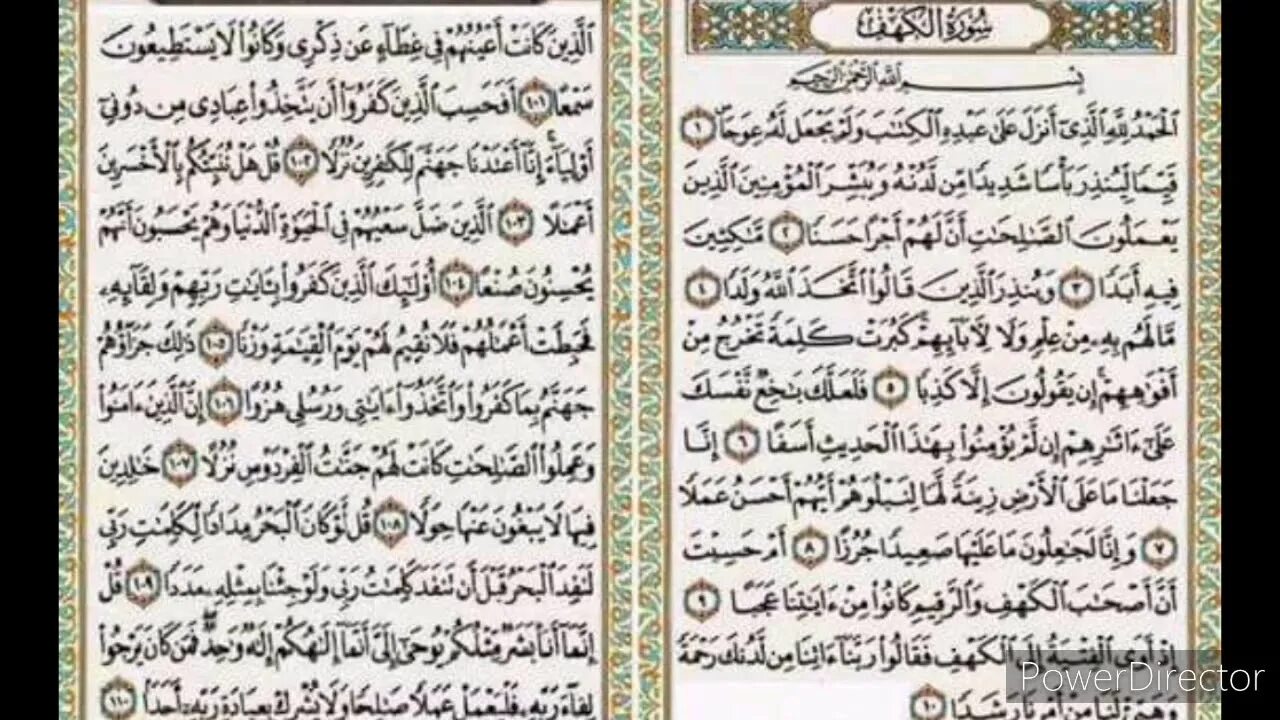 سُورَةُ الْكَهْفِ
بِسْمِ اللَّهِ الرَّحْمَٰنِ الرَّحِيمِ
ٱلْحَمْدُ لِلَّهِ ٱلَّذِىٓ أَنزَلَ عَلَىٰ عَبْدِهِ ٱلْكِتَٰبَ وَلَمْ يَجْعَل لَّهُۥ عِوَجَاۜ ١
قَيِّمًا لِّيُنذِرَ بَأْسًا شَدِيدًا مِّن لَّدُنْهُ وَيُبَشِّرَ ٱلْمُؤْمِنِينَ ٱلَّذِينَ
يَعْمَلُونَ ٱلصَّٰلِحَٰتِ أَنَّ لَهُمْ أَجْرًا حَسَنًا ٢ مَّٰكِثِينَ
فِيهِ أَبَدًا ٣ وَيُنذِرَ ٱلَّذِينَ قَالُوا۟ ٱتَّخَذَ ٱللَّهُ وَلَدًا ٤
مَّا لَهُم بِهِۦ مِنْ عِلْمٍ وَلَا لِءَابَآئِهِمْ كَبُرَتْ كَلِمَةً تَخْرُجُ مِنْ
أَفْوَٰهِهِمْ إِن يَقُولُونَ إِلَّا كَذِبًا ٥ فَلَعَلَّكَ بَٰخِعٌ نَّفْسَكَ
عَلَىٰٓ ءَاثَٰرِهِمْ إِن لَّمْ يُؤْمِنُوا۟ بِهَٰذَا ٱلْحَدِيثِ أَسَفًا ٦ إِنَّا
جَعَلْنَا مَا عَلَى ٱلْأَرْضِ زِينَةً لَّهَا لِنَبْلُوَهُمْ أَيُّهُمْ أَحْسَنُ عَمَلًا
٧ وَإِنَّا لَجَٰعِلُونَ مَا عَلَيْهَا صَعِيدًا جُرُزًا ٨ أَمْ حَسِبْتَ
أَنَّ أَصْحَٰبَ ٱلْكَهْفِ وَٱلرَّقِيمِ كَانُوا۟ مِنْ ءَايَٰتِنَا عَجَبًا ٩
إِذْ أَوَى ٱلْفِتْيَةُ إِلَى ٱلْكَهْفِ فَقَالُوا۟ رَبَّنَآ ءَاتِنَا مِن لَّدُنكَ رَحْمَةً
وَهَيِّئْ لَنَا مِنْ أَمْرِنَا رَشَدًا ١٠
ٱلَّذِينَ كَانَتْ أَعْيُنُهُمْ فِى غِطَآءٍ عَن ذِكْرِى وَكَانُوا۟ لَا يَسْتَطِيعُونَ
سَمْعًا ١٠١ أَفَحَسِبَ ٱلَّذِينَ كَفَرُوٓا۟ أَن يَتَّخِذُوا۟ عِبَادِى مِن دُونِىٓ
أَوْلِيَآءَ ۚ إِنَّآ أَعْتَدْنَا جَهَنَّمَ لِلْكَٰفِرِينَ نُزُلًا ١٠٢ قُلْ هَلْ نُنَبِّئُكُم بِٱلْأَخْسَرِينَ
أَعْمَٰلًا ١٠٣ ٱلَّذِينَ ضَلَّ سَعْيُهُمْ فِى ٱلْحَيَوٰةِ ٱلدُّنْيَا وَهُمْ يَحْسَبُونَ أَنَّهُمْ
يُحْسِنُونَ صُنْعًا ١٠٤ أُو۟لَٰٓئِكَ ٱلَّذِينَ كَفَرُوا۟ بِـَٔايَٰتِ رَبِّهِمْ وَلِقَآئِهِۦ
فَحَبِطَتْ أَعْمَٰلُهُمْ فَلَا نُقِيمُ لَهُمْ يَوْمَ ٱلْقِيَٰمَةِ وَزْنًا ١٠٥ ذَٰلِكَ جَزَآؤُهُمْ
جَهَنَّمُ بِمَا كَفَرُوا۟ وَٱتَّخَذُوٓا۟ ءَايَٰتِى وَرُسُلِى هُزُوًا ١٠٦ إِنَّ ٱلَّذِينَ ءَامَنُوا۟
وَعَمِلُوا۟ ٱلصَّٰلِحَٰتِ كَانَتْ لَهُمْ جَنَّٰتُ ٱلْفِرْدَوْسِ نُزُلًا ١٠٧ خَٰلِدِينَ
فِيهَا لَا يَبْغُونَ عَنْهَا حِوَلًا ١٠٨ قُل لَّوْ كَانَ ٱلْبَحْرُ مِدَادًا لِّكَلِمَٰتِ رَبِّى
لَنَفِدَ ٱلْبَحْرُ قَبْلَ أَن تَنفَدَ كَلِمَٰتُ رَبِّى وَلَوْ جِئْنَا بِمِثْلِهِۦ مَدَدًا ١٠٩ قُلْ
إِنَّمَآ أَنَا۠ بَشَرٌ مِّثْلُكُمْ يُوحَىٰٓ إِلَىَّ أَنَّمَآ إِلَٰهُكُمْ إِلَٰهٌ وَٰحِدٌ ۖ فَمَن كَانَ يَرْجُوا۟
لِقَآءَ رَبِّهِۦ فَلْيَعْمَلْ عَمَلًا صَٰلِحًا وَلَا يُشْرِكْ بِعِبَادَةِ رَبِّهِۦٓ أَحَدًۢا ١١٠
PowerDirector